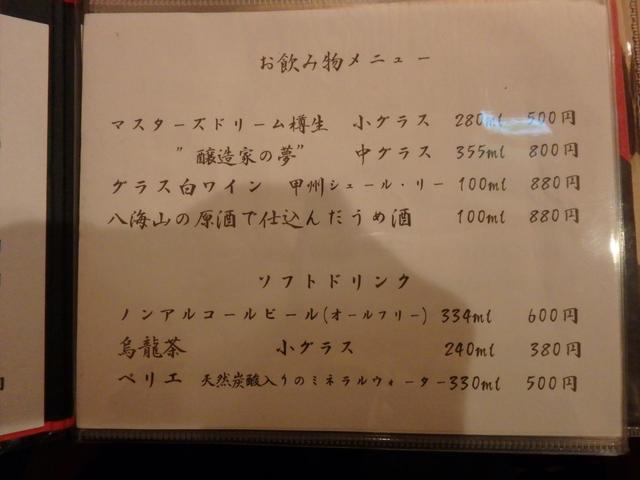 お飲み物メニュー
マスターズドリーム樽生 小グラス 280ml 500円
"醸造家の夢" 中グラス 355ml 800円
グラス白ワイン 甲州シュール・リー 100ml 880円
八海山の原酒で仕込んだうめ酒 100ml 880円
ソフトドリンク
ノンアルコールビール(オールフリー) 334ml 600円
烏龍茶 小グラス 240ml 380円
ペリエ 天然炭酸入りのミネラルウォーター 330ml 500円